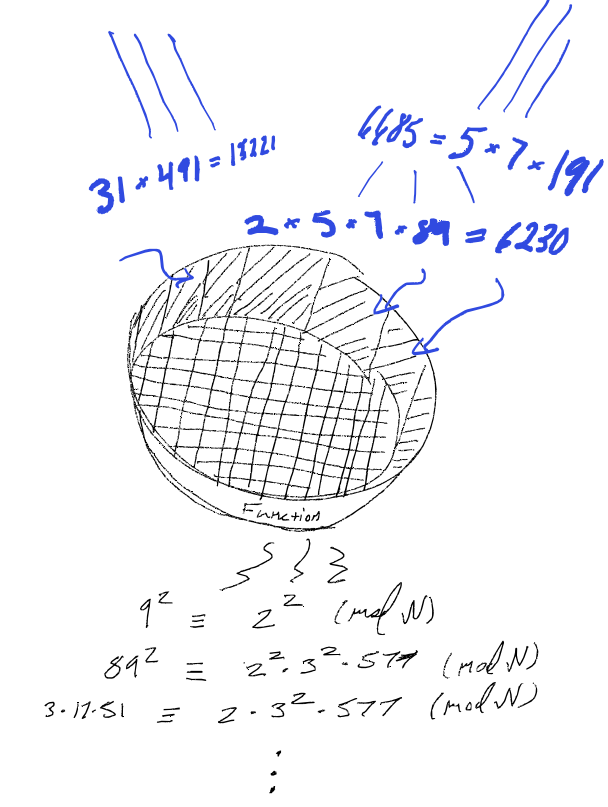 31 × 491 = 15221
6685 = 5 × 7 × 191
2 × 5 × 7 × 89 = 6230
Function
9² ≡ 2² (mod N)
89² ≡ 2² · 3² · 577 (mod N)
3 · 17 · 51 ≡ 2 · 3² · 577 (mod N)
⋮